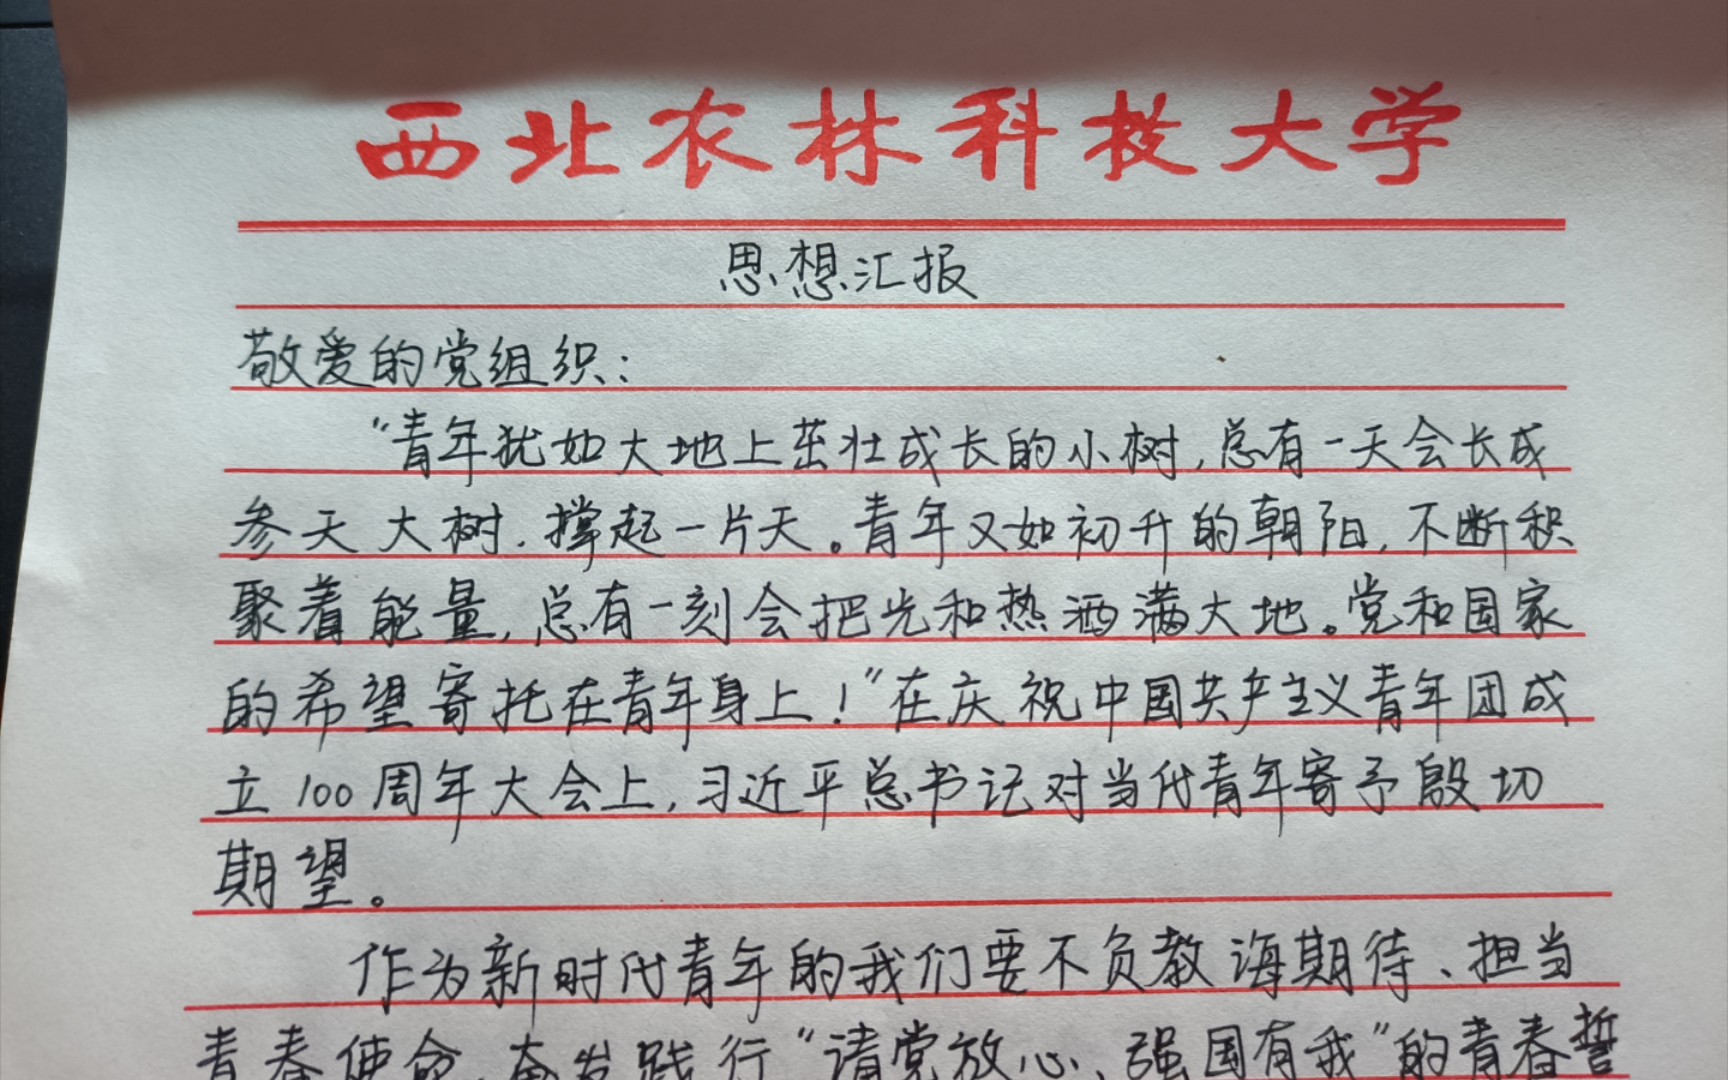 西北农林科技大学
思想汇报
敬爱的党组织：
“青年犹如大地上茁壮成长的小树,总有一天会长成
参天大树,撑起一片天。青年又如初升的朝阳,不断积
聚着能量,总有一刻会把光和热洒满大地。党和国家
的希望寄托在青年身上！”在庆祝中国共产主义青年团成
立100周年大会上,习近平总书记对当代青年寄予殷切
期望。
作为新时代青年的我们要不负教诲期待、担当
青春使命,奋发践行“请党放心、强国有我”的青春誓